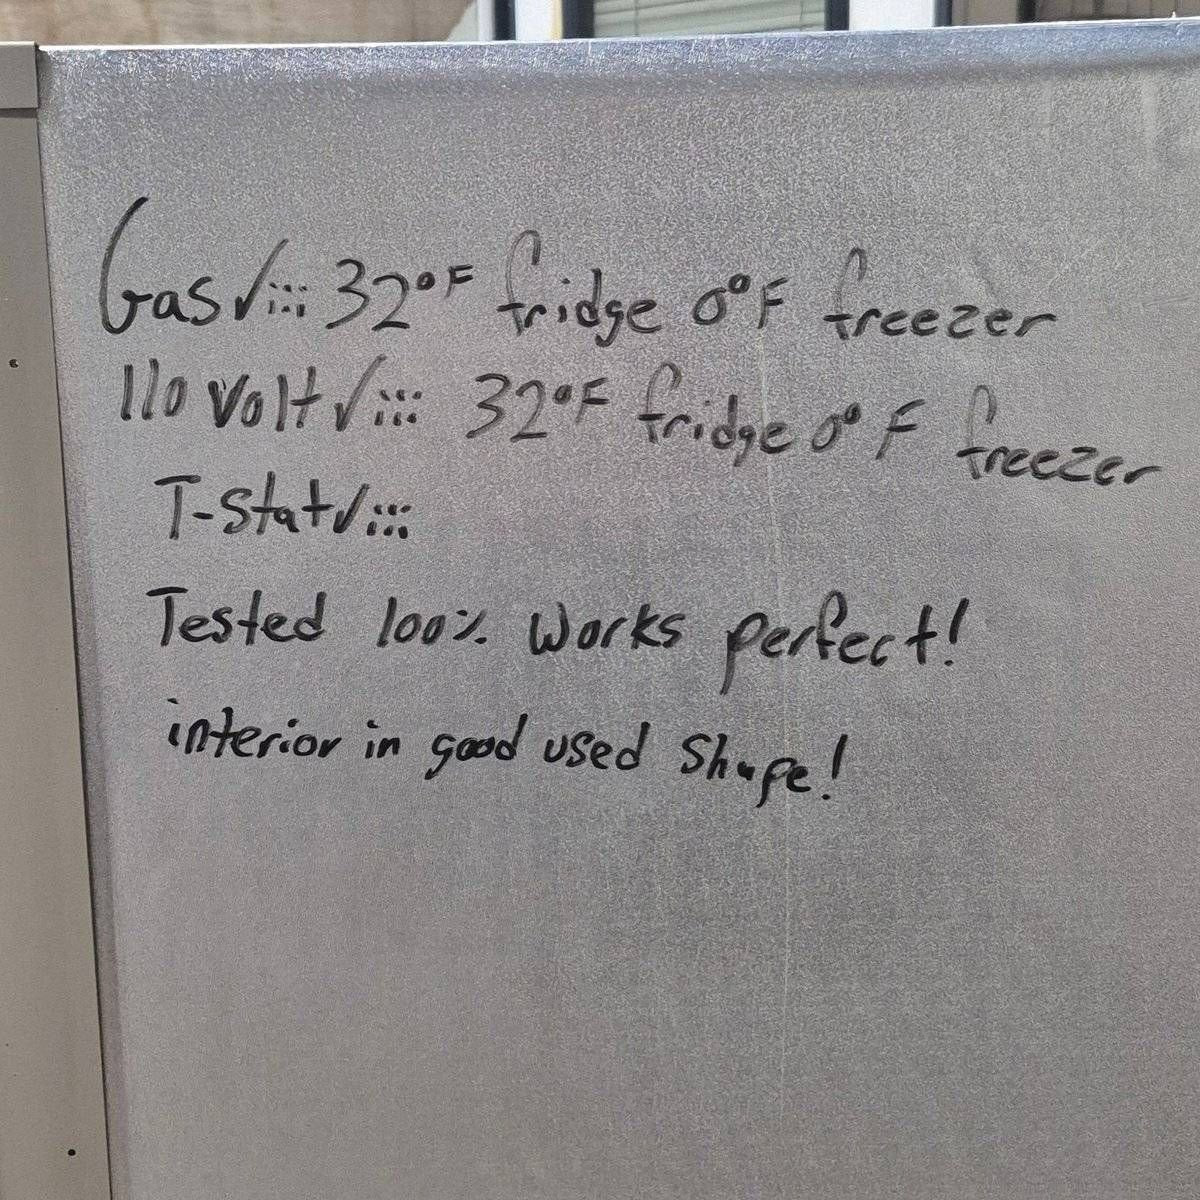 Gas✓::: 32°F fridge 0°F freezer
110 Volt✓::: 32°F fridge 0°F freezer
T-stat✓:::
Tested 100% works perfect!
interior in good used shape!